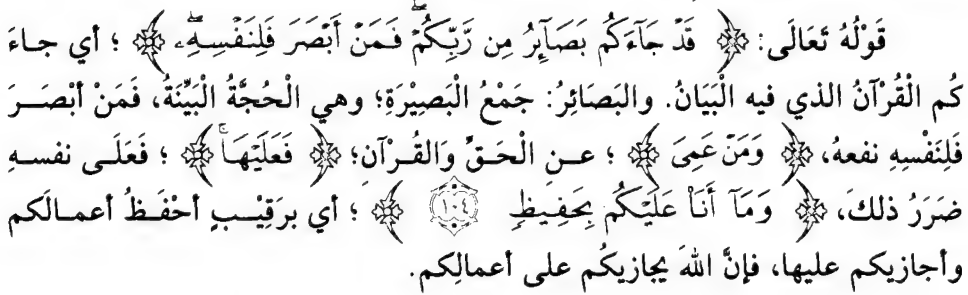 قَوْلُهُ تَعَالَى: ﴿ قَدْ جَآءَكُم بَصَآئِرُ مِن رَّبِّكُمْ ۖ فَمَنْ أَبْصَرَ فَلِنَفْسِهِۦ ۖ ﴾ ؛ أي جاءَ
كُم الْقُرْآنُ الذي فيه الْبَيَانُ. والبَصَائِرُ: جَمْعُ الْبَصِيْرَةِ؛ وهي الْحُجَّةُ الْبَيِّنَةُ، فَمَنْ أبْصَـــرَ
فَلِنَفْسِهِ نفعهُ، ﴿ وَمَنْ عَمِىَ ﴾ ؛ عــنِ الْحَــقِّ وَالقُــرْآنِ؛ ﴿ فَعَلَيْهَا ۚ ﴾ ؛ فَعَلَــى نفســهِ
ضَرَرُ ذلكَ، ﴿ وَمَآ أَنَا۠ عَلَيْكُم بِحَفِيظٍ ١٠٤ ﴾ ؛ أي برَقِيْــبٍ أحْفَــظُ أعمــالَكم
وأجازيكم عليها، فإنَّ اللهَ يجازيكُم على أعمالِكم.